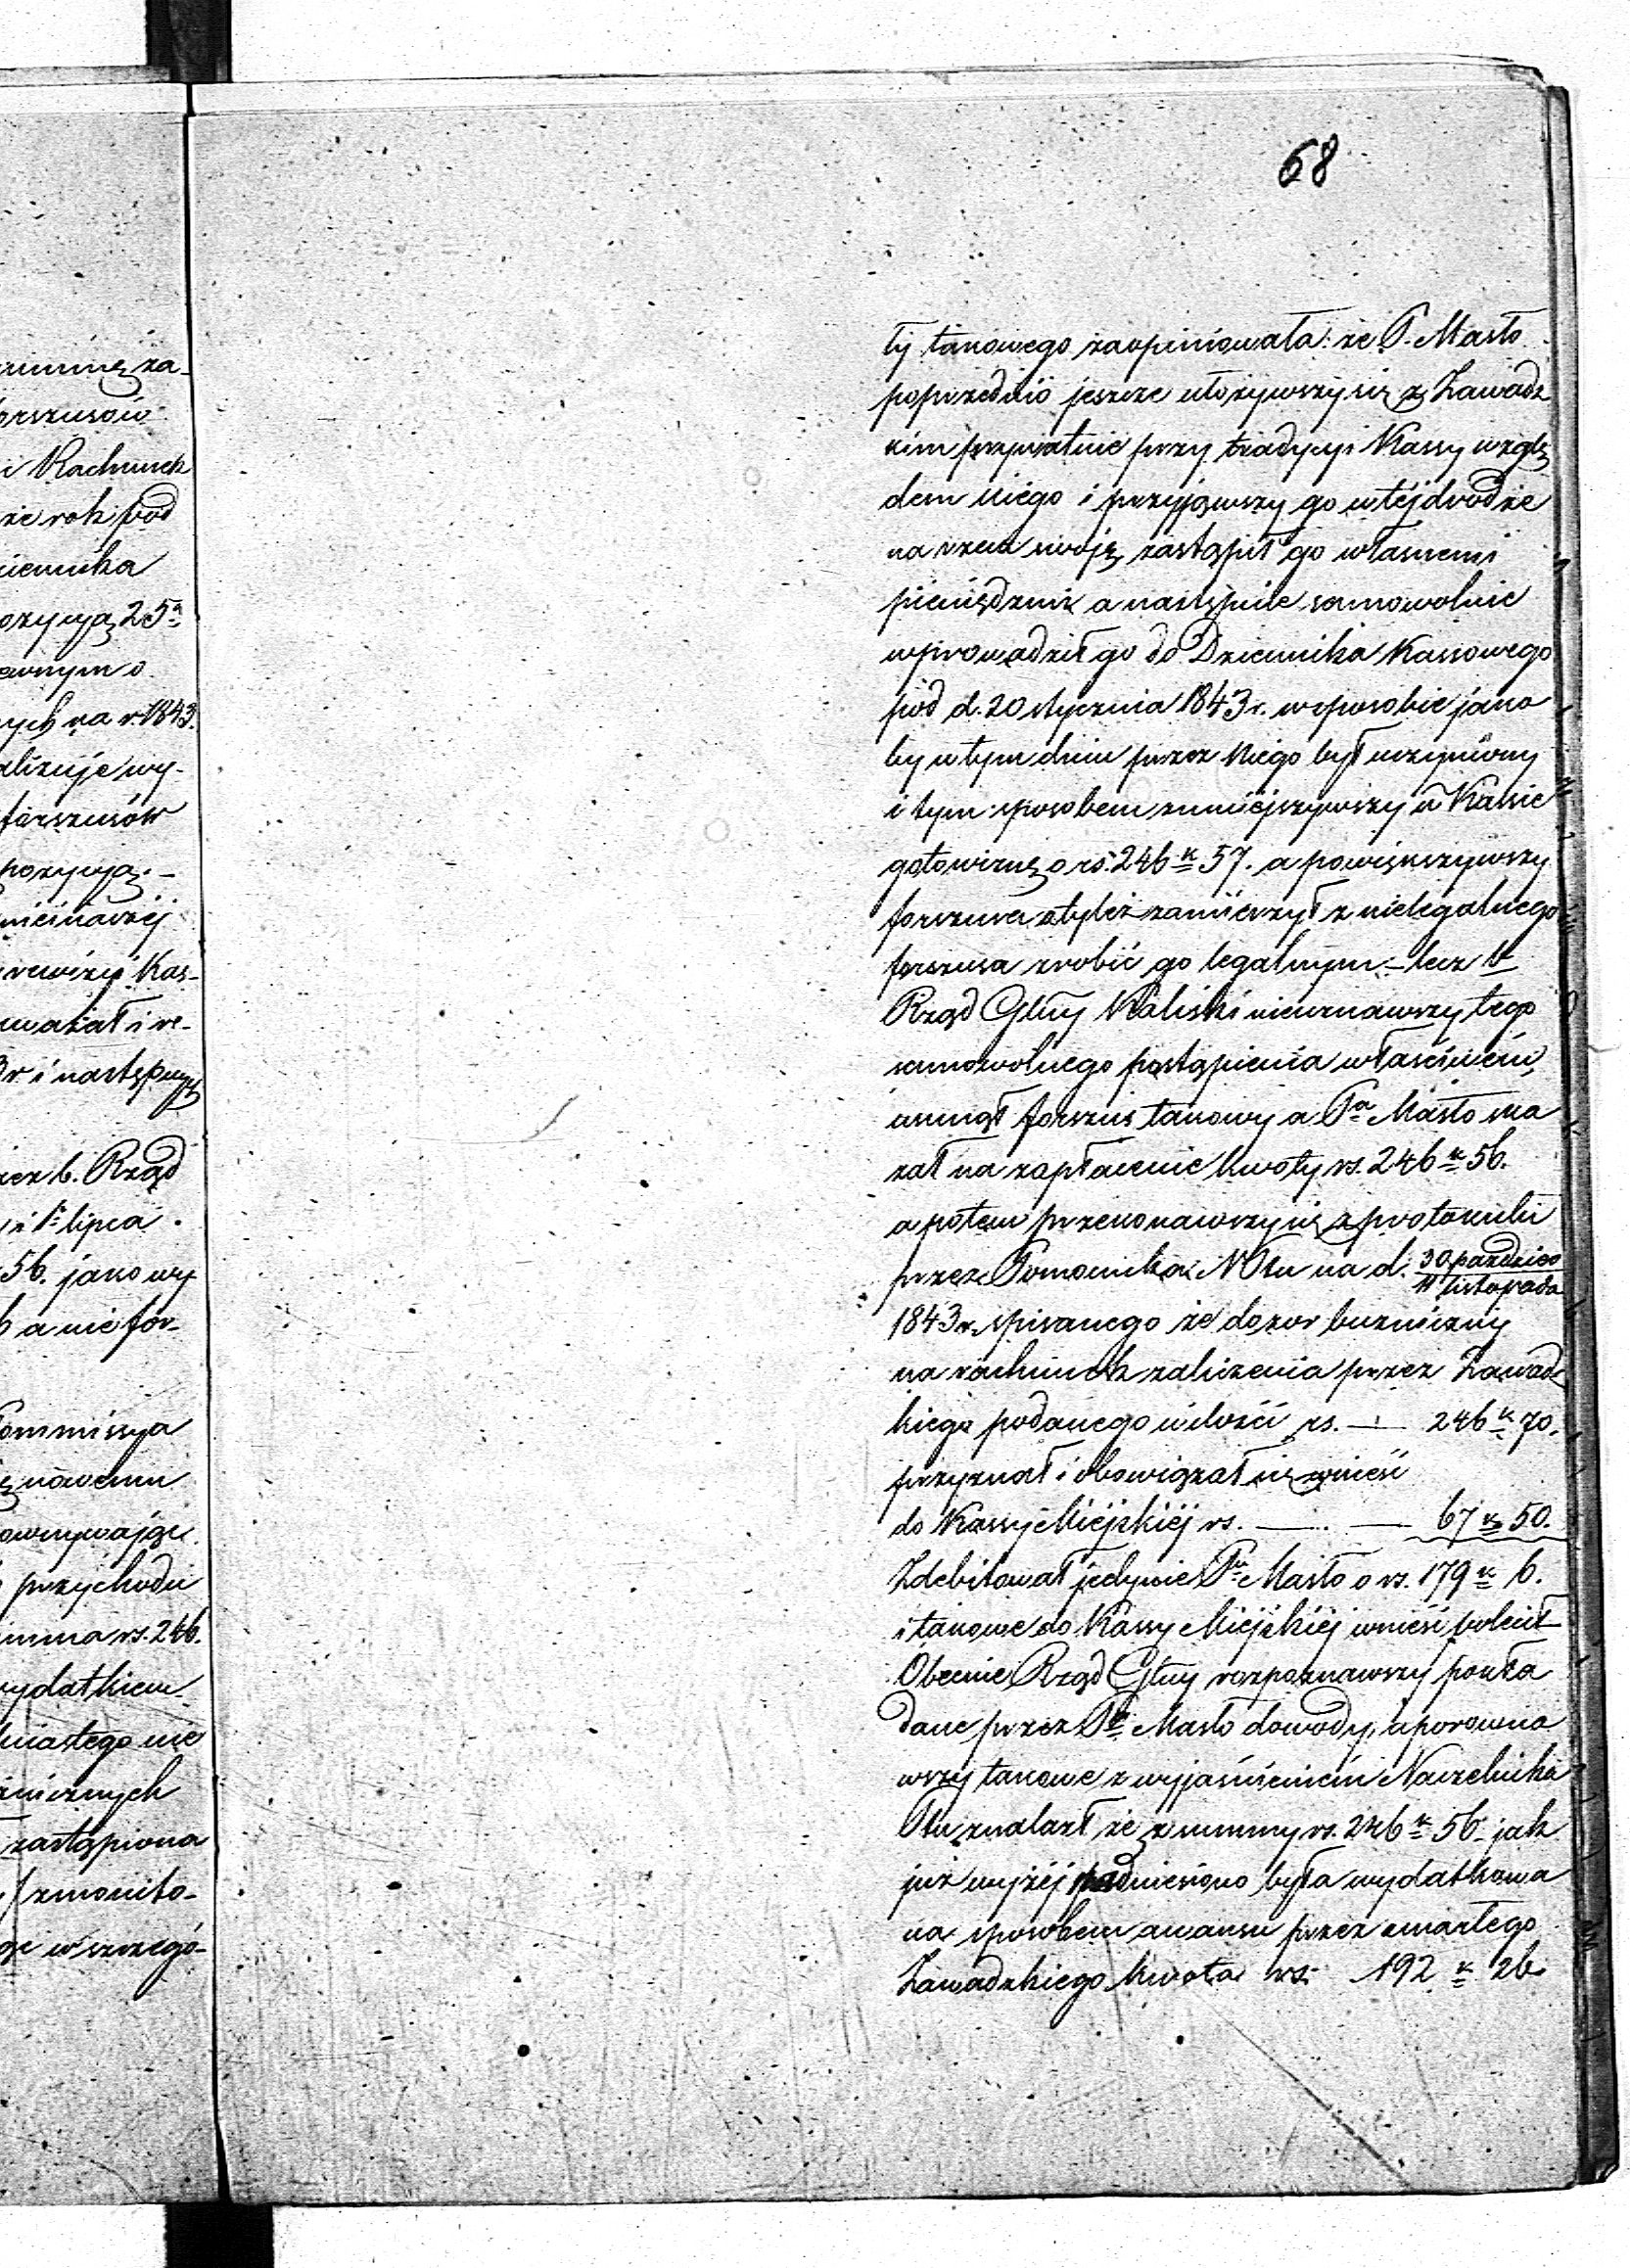 68
rummę za-
orszusów
i Rachunek
że rok pod
iennika
ozycyą 25ª
ewnym o
ych na r. 1843.
alizuje wy-
forszusów
pozycyą.-
nieinaczéj
rewizyi Kas-
uważał i re-
3 r. i następny
zez b. Rząd
i 1º lipca
56. jako wy
b a nie for-
Kommissya
nowemu
przychodu
umma rs. 246.
wydatkiem
miastego nie
źnicznych
zastąpiona
zmonito-
ge w szczegó-
tyj takowego zaopiniowała: że P. Masło
poprzednio jeszcze ułożywszy się z Zawadz
kim prywatnie przy tradycyi Kassy wzglę
dem niego i przyjąwszy go w téj drodze
na rzecz swoję zastąpił go własnemi
pieniędzmi a następnie samowolnie
wprowadził go do Dziennika Kassowego
pod d. 20 stycznia 1843 r. w sposobie jako
by w tym dniu przez niego był uczyniony
i tym sposobem zmniéjszywszy w Kassie
gotowiznę o rs. 246 k 57. a powiększywszy
forszusa o tyleż zamierzył z nielegalnego
forszusa zrobić go legalnym – lecz b
Rząd Glny Kaliski nieuznawszy tego
samowolnego postąpienia właściwém,
usunął forszus takowy a Pª Masło ska
zał na zapłacenie kwoty rs. 246 k 56.
a potem przekonawszy się z protokułu
przez Pomocnika NPtu na d. 30 paździer / 11 listopada
1843 r. spisanego że dozor bużniczny
na rachunek zaliczenia przez Zawadz
kiego podanego w ilości rs. — 246 k 70.
przyznał i obowiązał się wnieść
do Kassy Miéjskiéj rs. — — 67 k 50.
Zdebitował jedynie Pª Masło o rs. 179 k 6.
i takowe do Kassy Miéjskiéj wnieść polecił
Obecnie Rząd Glny rozpoznawszy poskła
dane przez Pª Masło dowody, i porowna
wszy takowe z wyjaśnieniem Naczelnika
Ptu, znalazł że z summy rs. 246 k 56. jak
już wyżéj podniesiono była wydatkowa
na sposobem awansu przez zmarłego
Zawadzkiego kwota rs. 192 k 26.